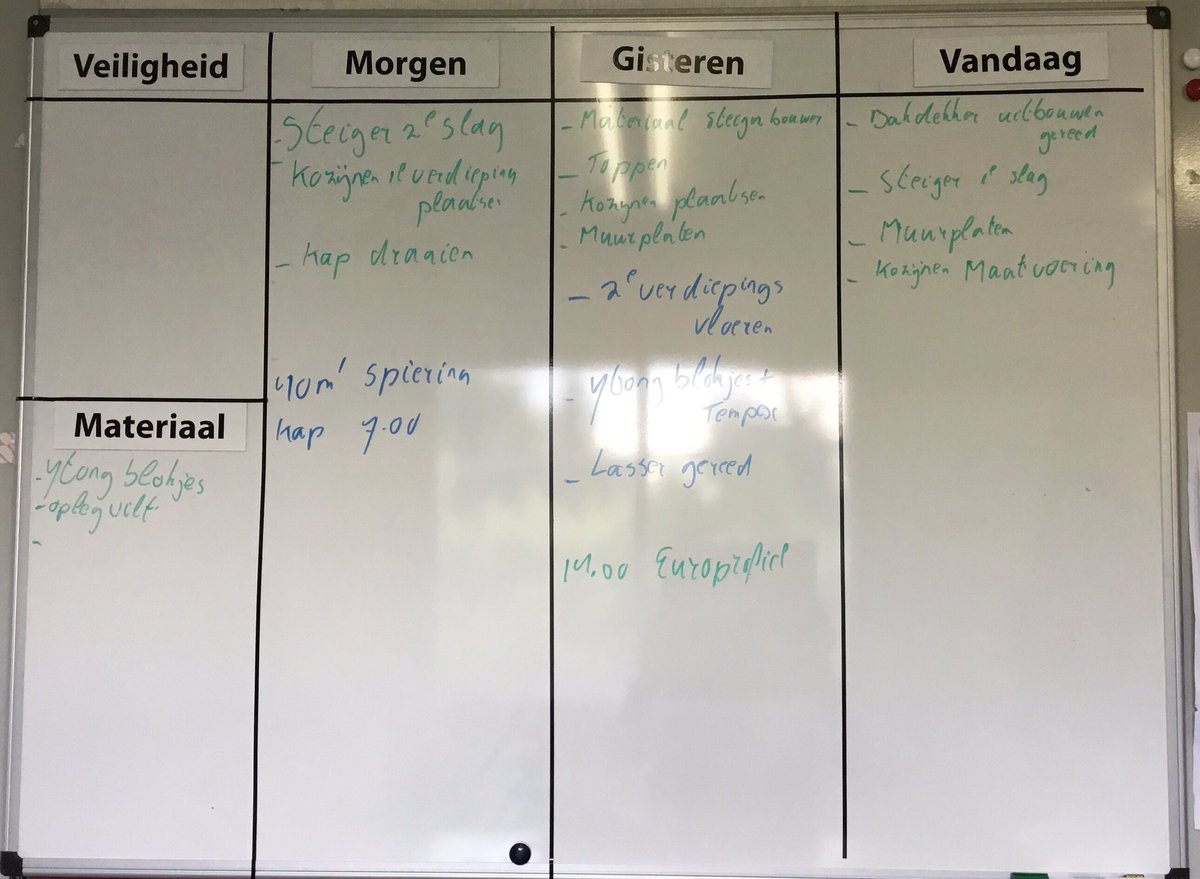 Veiligheid
Morgen
Gisteren
Vandaag
- Steiger 2e slag
- Kozijnen 1e verdieping
plaatsen
- Kap draaien
40m' spiering
Kap 7.00
- Materiaal steigerbouwer
- Toppen
- Kozijnen plaatsen
- Muurplaten
- 2e verdiepings
vloeren
- Ytong blokjes +
Tempex
- Lasser gereed
14.00 Europrofiel
- Dakdekker uitbouwen
gereed
- Steiger 1e slag
- Muurplaten
- Kozijnen Maatvoering
Materiaal
- Ytong blokjes
- opleg vilt
-